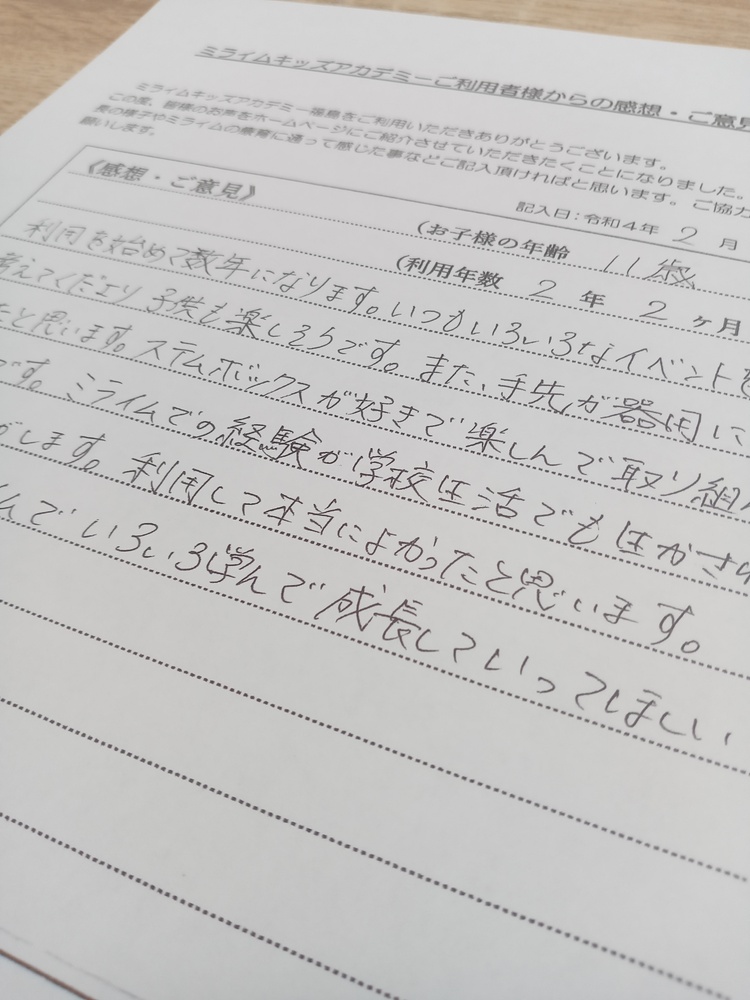 ミライムキッズアカデミーご利用者様からの感想・ご意見
ミライムキッズアカデミー福島をご利用いただきありがとうございます。
この度、皆様のお声をホームページにご紹介させていただきたくことになりました。
の様子やミライムの療育に通って感じた事などご記入頂ければと思います。ご協力
願いします。
記入日:令和4年 2 月
《感想・ご意見》
(お子様の年齢 11歳
(利用年数 2 年 2 ヶ月
利用を始めて数年になります。いつもいろいろなイベントを
考えてくださり 子供も楽しそうです。また、手先が器用に
たと思います。ステムボックスが好きで楽しんで取り組ん
です。ミライムでの経験が学校生活でも生かされ
がします。利用して本当によかったと思います。
んでいろいろ学んで成長していってほしい